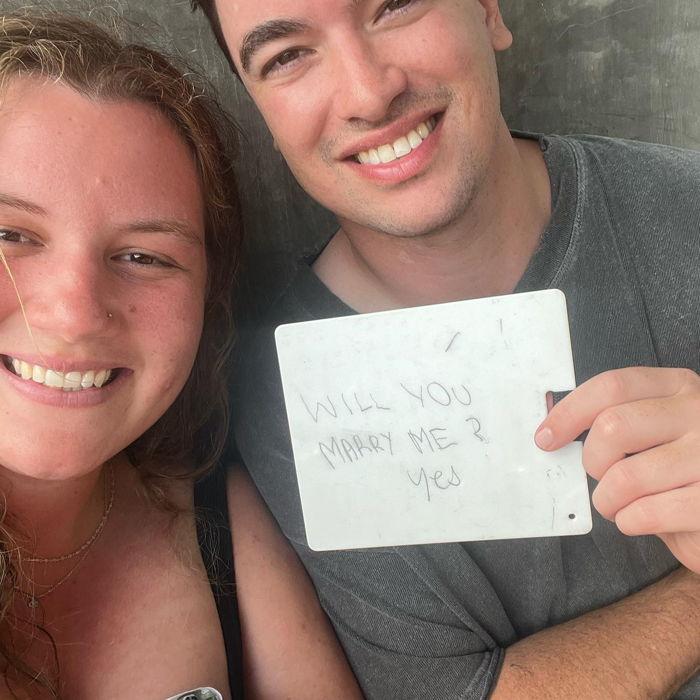 WILL YOU
MARRY ME?
yes